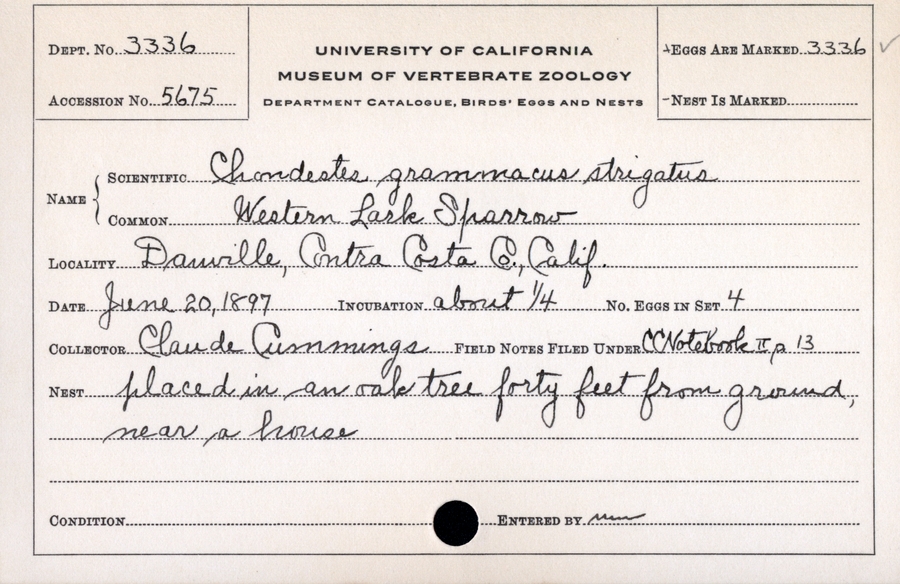 DEPT. No. 3336
ACCESSION No. 5675
UNIVERSITY OF CALIFORNIA
MUSEUM OF VERTEBRATE ZOOLOGY
DEPARTMENT CATALOGUE, BIRDS' EGGS AND NESTS
EGGS ARE MARKED 3336
NEST IS MARKED
NAME
SCIENTIFIC Chondestes grammacus strigatus
COMMON Western Lark Sparrow
LOCALITY Danville, Contra Costa Co., Calif.
DATE June 20, 1897 INCUBATION about 1/4 No. EGGS IN SET 4
COLLECTOR Claude Cummings FIELD NOTES FILED UNDER CC Notebook II p 13
NEST placed in an oak tree forty feet from ground,
near a house
CONDITION ENTERED BY